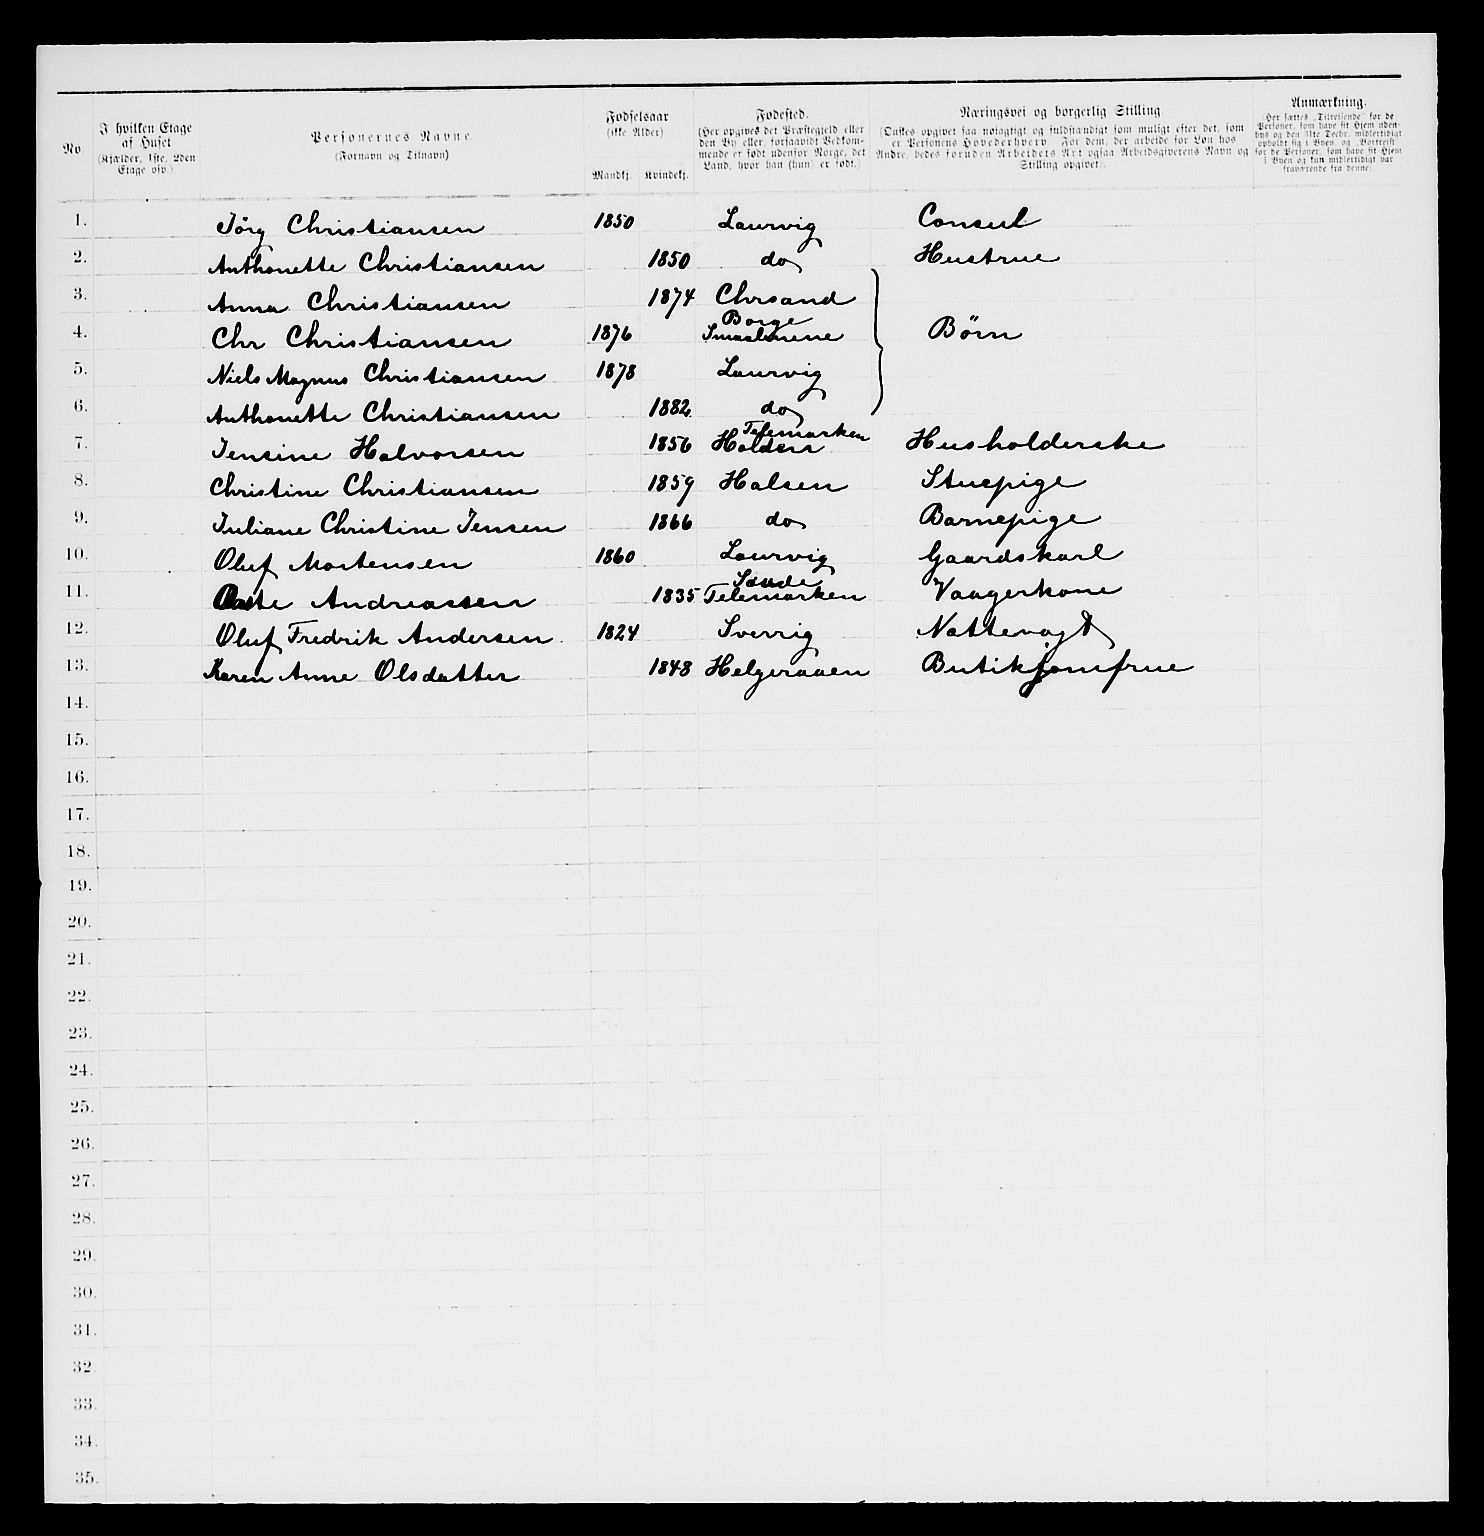 No.
I hvilken Etage af Huset
(Kjælder, 1ste, 2den Etage osv.).
Personernes Navne.
(Fornavn og Tilnavn)
Fødselsaar
(ikke Alder)
Mandkj. Kvindekj.
Fødested.
(Her opgives det Præstegjeld eller
den By eller, forsaavidt Vedkom-
mende er født udenfor Norge, det
Land, hvor han (hun) er født.)
Næringsvei og borgerlig Stilling.
(Ønskes opgivet saa nøiagtigt og fuldstændigt som muligt efter det, som
er Personens Hovederhverv. For dem, der arbeide for Løn hos
Andre, bedes foruden Arbeidets Art ogsaa Arbeidsgiverens Navn og
Stilling opgivet).
Anmærkning.
(Her sættes „Tilreisende“ for de
Personer, som have sit Hjem uden-
bys og den 31te Decbr. midlertidigt
opholdt sig i Byen, og „Bortreist“
for de Personer, som have sit Hjem
i Byen og kun midlertidigt var
fraværende fra denne).
1. Jörg Christiansen 1850 Laurvig Consul
2. Anthonette Christiansen 1850 do Hustrue
3. Anna Christiansen 1874 Chrsand
4. Chr Christiansen 1876 Borge Smaalenene Börn
5. Niels Magnus Christiansen 1878 Laurvig
6. Anthonette Christiansen 1882 do
7. Jensine Halvorsen 1856 Telemarken Holden Husholderske
8. Christine Christiansen 1859 Halsen Stuepige
9. Juliane Christine Jensen 1866 do Barnepige
10. Oluf Mortensen 1860 Laurvig Gaardskarl
11. Andreassen 1835 Saude Telemarken Vaagerkone
12. Oluf Fredrik Andersen 1824 Sverrig Nattevagt
13. Karen Anne Olsdatter 1848 Helgeraaen Butikjomfrue
14.
15.
16.
17.
18.
19.
20.
21.
22.
23.
24.
25.
26.
27.
28.
29.
30.
31.
32.
33.
34.
35.